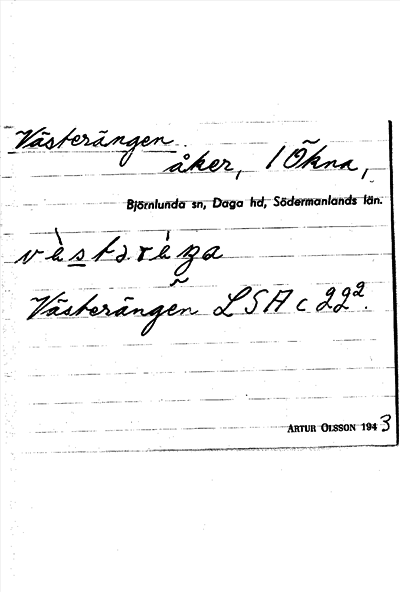 Västerängen
åker, 1 Ökna,
Björnlunda sn, Daga hd, Södermanlands län.
Västerängen LSA c 22².
ARTUR OLSSON 1943